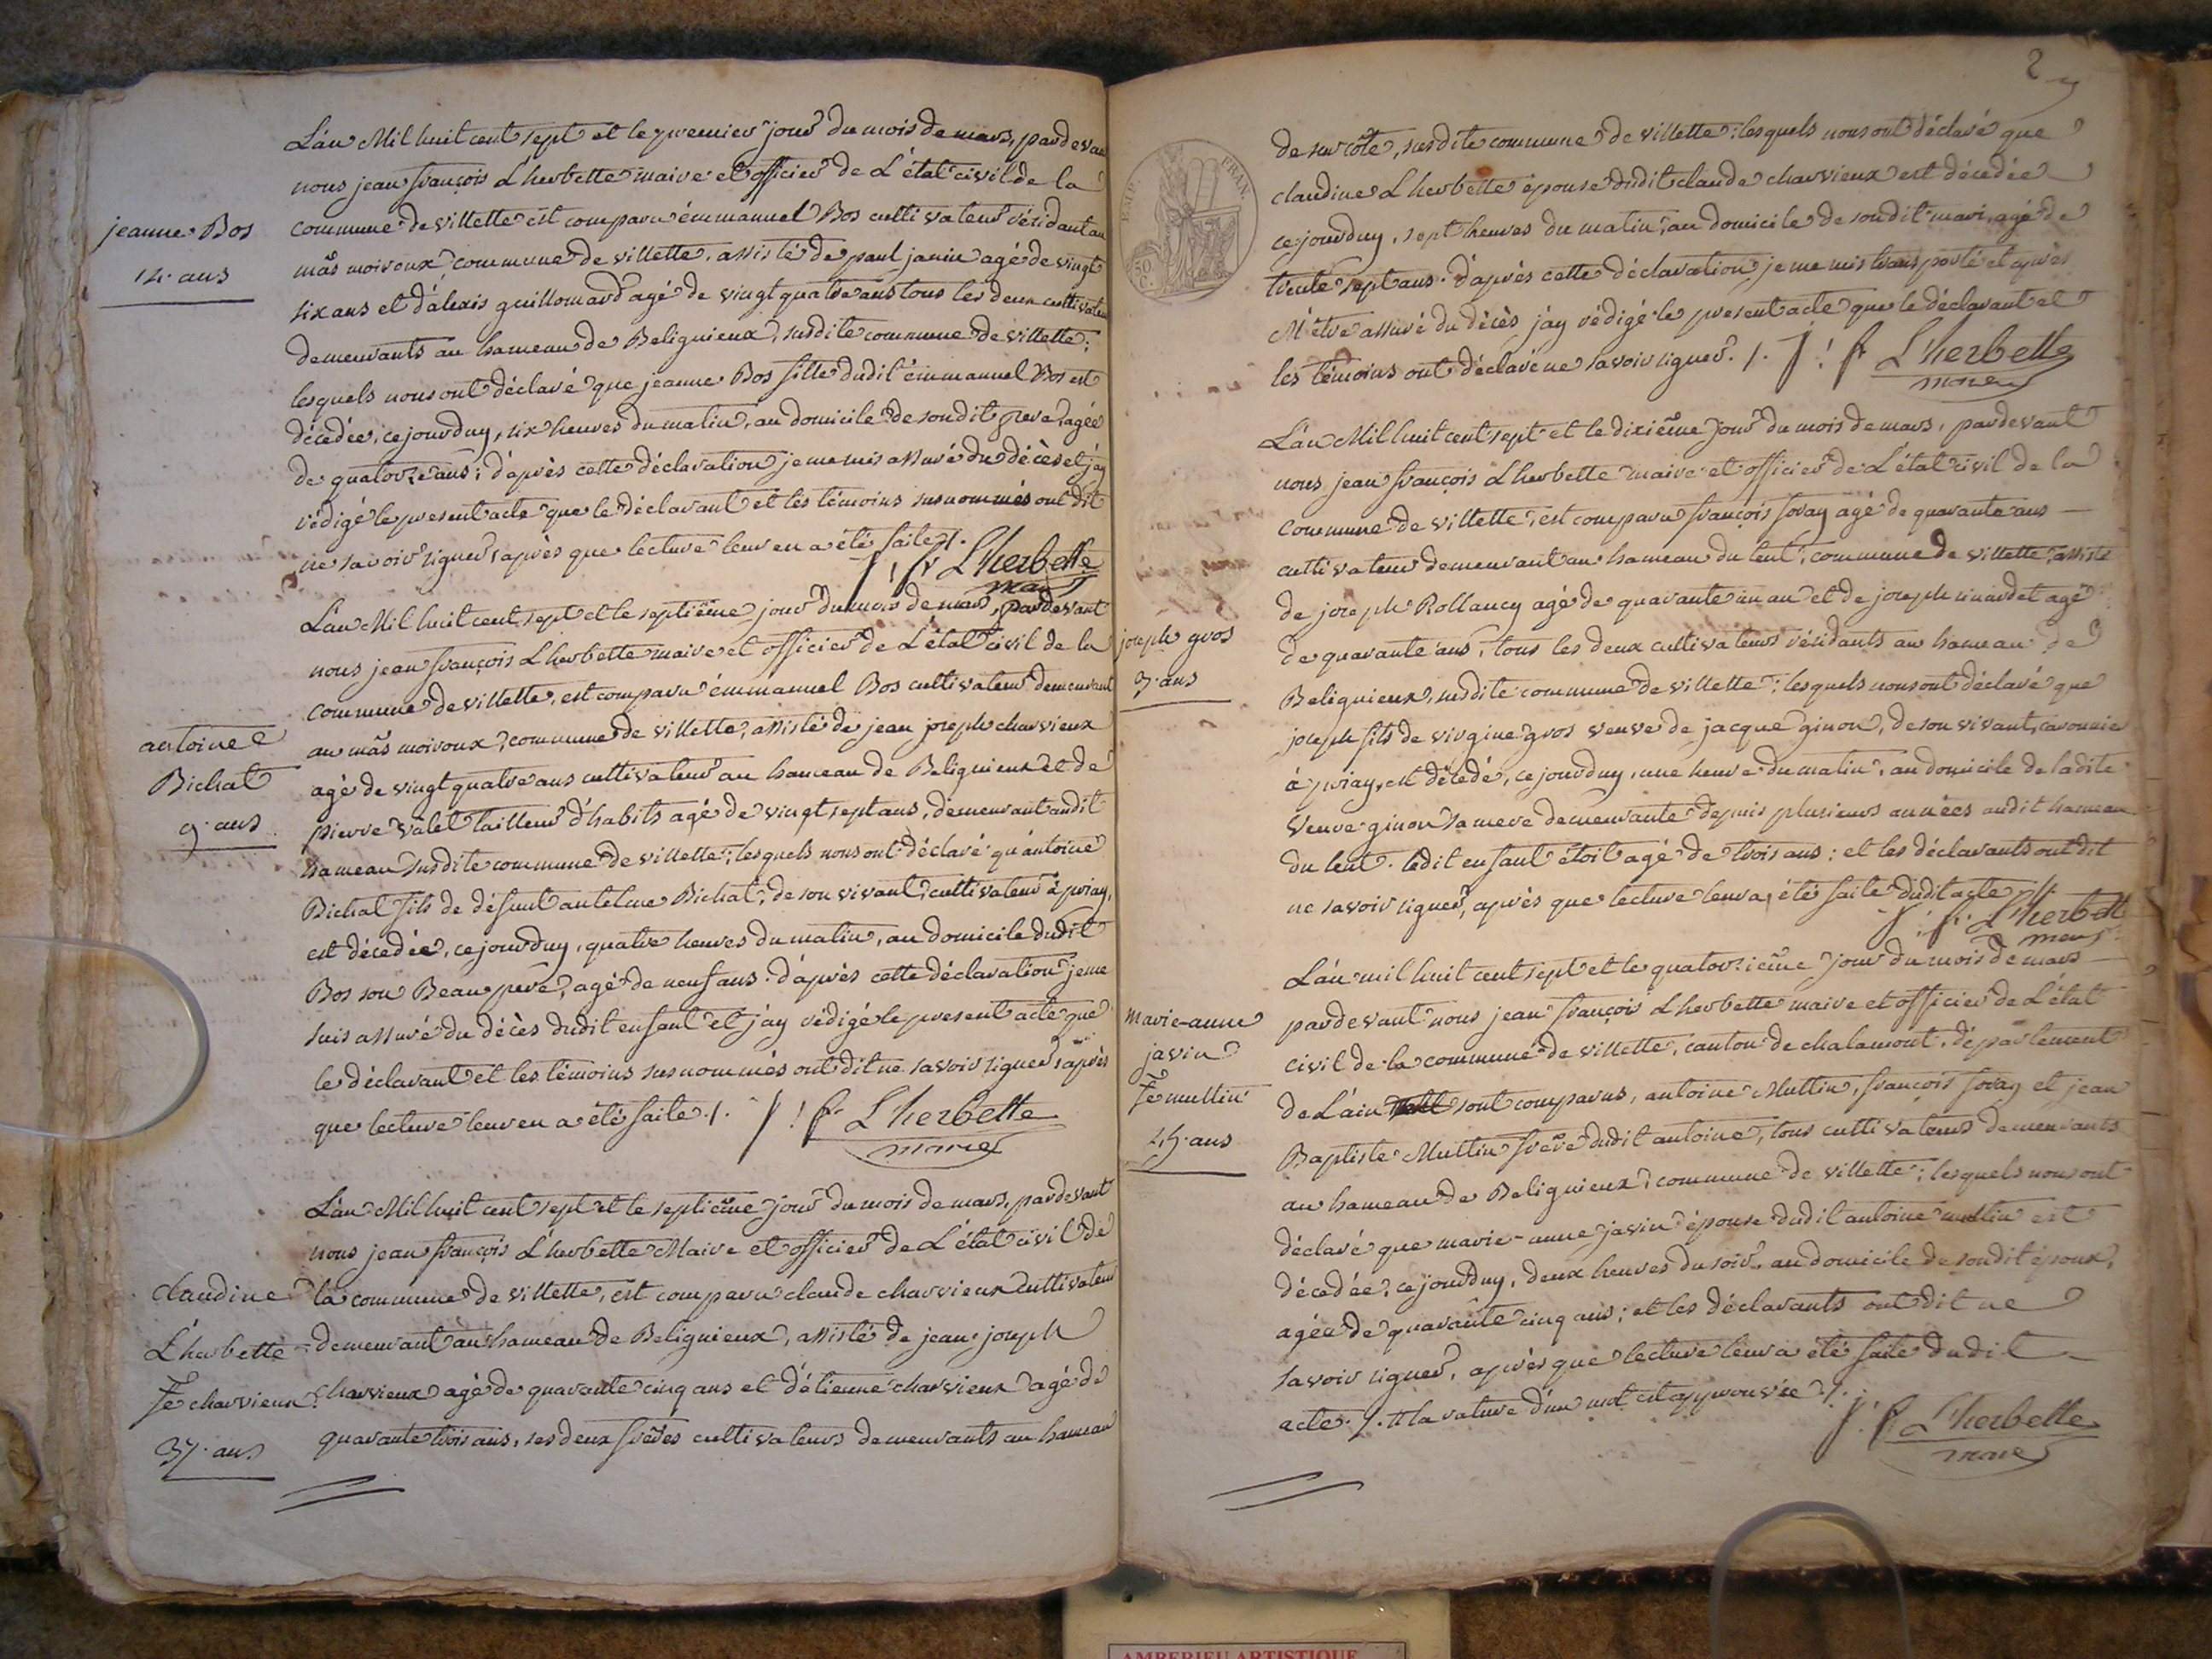 L'an Mil huit cent sept et le premier jour du mois de mars, pardevant
nous jean françois Lherbette maire et officier de L'état civil de la
jeanne Bos
14 ans
commune de villette est comparu émmanuel Bos cultivateur résidant au
mas moiroux, commune de villette, assisté de paul janin agé de vingt
six ans et d'alexis guillomard agé de vingt quatre ans tous les deux cultivateurs
demeurants au hameau de Beligneux, susdite commune de villette;
lesquels nous ont déclaré que jeanne Bos fille dudit émmanuel Bos est
décédée, ce jourduy, six heures du matin, au domicile de sondit pere, agée
de quatorze ans; d'après cette déclaration je me mis assuré du décès et j'ay
rédigé le present acte que le déclarant et les témoins susnommés ont dit
ne savoir signer, après que lecture leur en a été faite ./.
j: fr Lherbette
maire
L'an Mil huit cent sept et le septième jour du mois de mars, pardevant
nous jean françois Lherbette maire et officier de L'état civil de la
commune de villette, est comparu émmanuel Bos cultivateur demeurant
antoine
Bichat
9 ans
au mas moiroux, commune de villette, assisté de jean joseph charvieux
agé de vingt quatre ans cultivateur au hameau de Beliguieux et de
pierre valet tailleur d'habits agé de vingt sept ans, demeurant audit
hameau susdite commune de villette; lesquels nous ont déclaré qu'antoine
Bichat fils de défunt antelme Bichat, de son vivant, cultivateur à priay,
est décédée, ce jourduy, quatre heures du matin, au domicile dudit
Bos son Beau pere, agé de neuf ans. d'après cette déclaration je me
suis assuré du décès dudit enfant et j'ay rédigé le present acte que
le déclarant et les témoins susnommés ont dit ne savoir signer, après
que lecture leur en a été faite ./. j: fr Lherbette
maire
L'an Mil huit cent sept et le septième jour du mois de mars, pardevant
nous jean françois Lherbette Maire et officier de L'état civil de
claudine
Lherbette
fe charvieux
37 ans
la commune de villette, est comparu claude charvieux cultivateur
demeurant au hameau de Beliguieux, assisté de jean joseph
charvieux agé de quarante cinq ans et d'étienne charvieux agé de
quarante trois ans, ses deux frères cultivateurs demeurants au hameau
2
EMP. FRAN.
50 C.
de sur côte, susdite commune de villette; lesquels nous ont déclaré que
claudine Lherbette épouse dudit claude charvieux est décédée
ce jourduy, sept heures du matin, au domicile de sondit mari, agé de
trente sept ans. d'après cette déclaration je me mis transporté et après
M'etre assuré du décès j'ay rédigé le present acte que le déclarant et
les témoins ont déclaré ne savoir signer ./. j: fr Lherbette
maire
L'an Mil huit cent sept et le dixième jour du mois de mars, pardevant
nous jean françois Lherbette maire et officier de L'état civil de la
commune de villette, est comparu françois foray agé de quarante ans
cultivateur demeurant au hameau du leut, commune de villette, assisté
de joseph Rollancy agé de quarante un an et de joseph agé
joseph gros
3 ans
de quarante ans, tous les deux cultivateurs résidants au hameau de
Beliguieux, susdite commune de villette; lesquels nous ont déclaré que
joseph fils de virgine gros veuve de jacque ginon, de son vivant,
à priay, est décédé, ce jourduy, une heure du matin, au domicile de ladite
veuve ginon sa mere demeurante depuis plusieurs années audit hameau
du leut. ledit enfant étoit agé de trois ans; et les déclarants ont dit
ne savoir signer, après que lecture leur a été faite dudit acte ./.
j: fr Lherbette
maire
L'an mil huit cent sept et le quatorzième jour du mois de mars
marie-anne
javin
fe muttin
45 ans
pardevant nous jean françois Lherbette maire et officier de L'état
civil de la commune de villette, canton de chalamont, département
de L'ain sont comparus, antoine Muttin, françois foray et jean
Baptiste Muttin frère dudit antoine, tous cultivateurs demeurants
au hameau de Beliguieux, commune de villette; lesquels nous ont
déclaré que marie-anne javin épouse dudit antoine muttin est
décédée, ce jourduy, deux heures du soir, au domicile de sondit époux,
agée de quarante cinq ans; et les déclarants ont dit ne
savoir signer, après que lecture leur a été faite dudit
acte ./. # la rature d'un mot est approuvée ./.
j: fr Lherbette
maire
AMBERIEU ARTISTIQUE